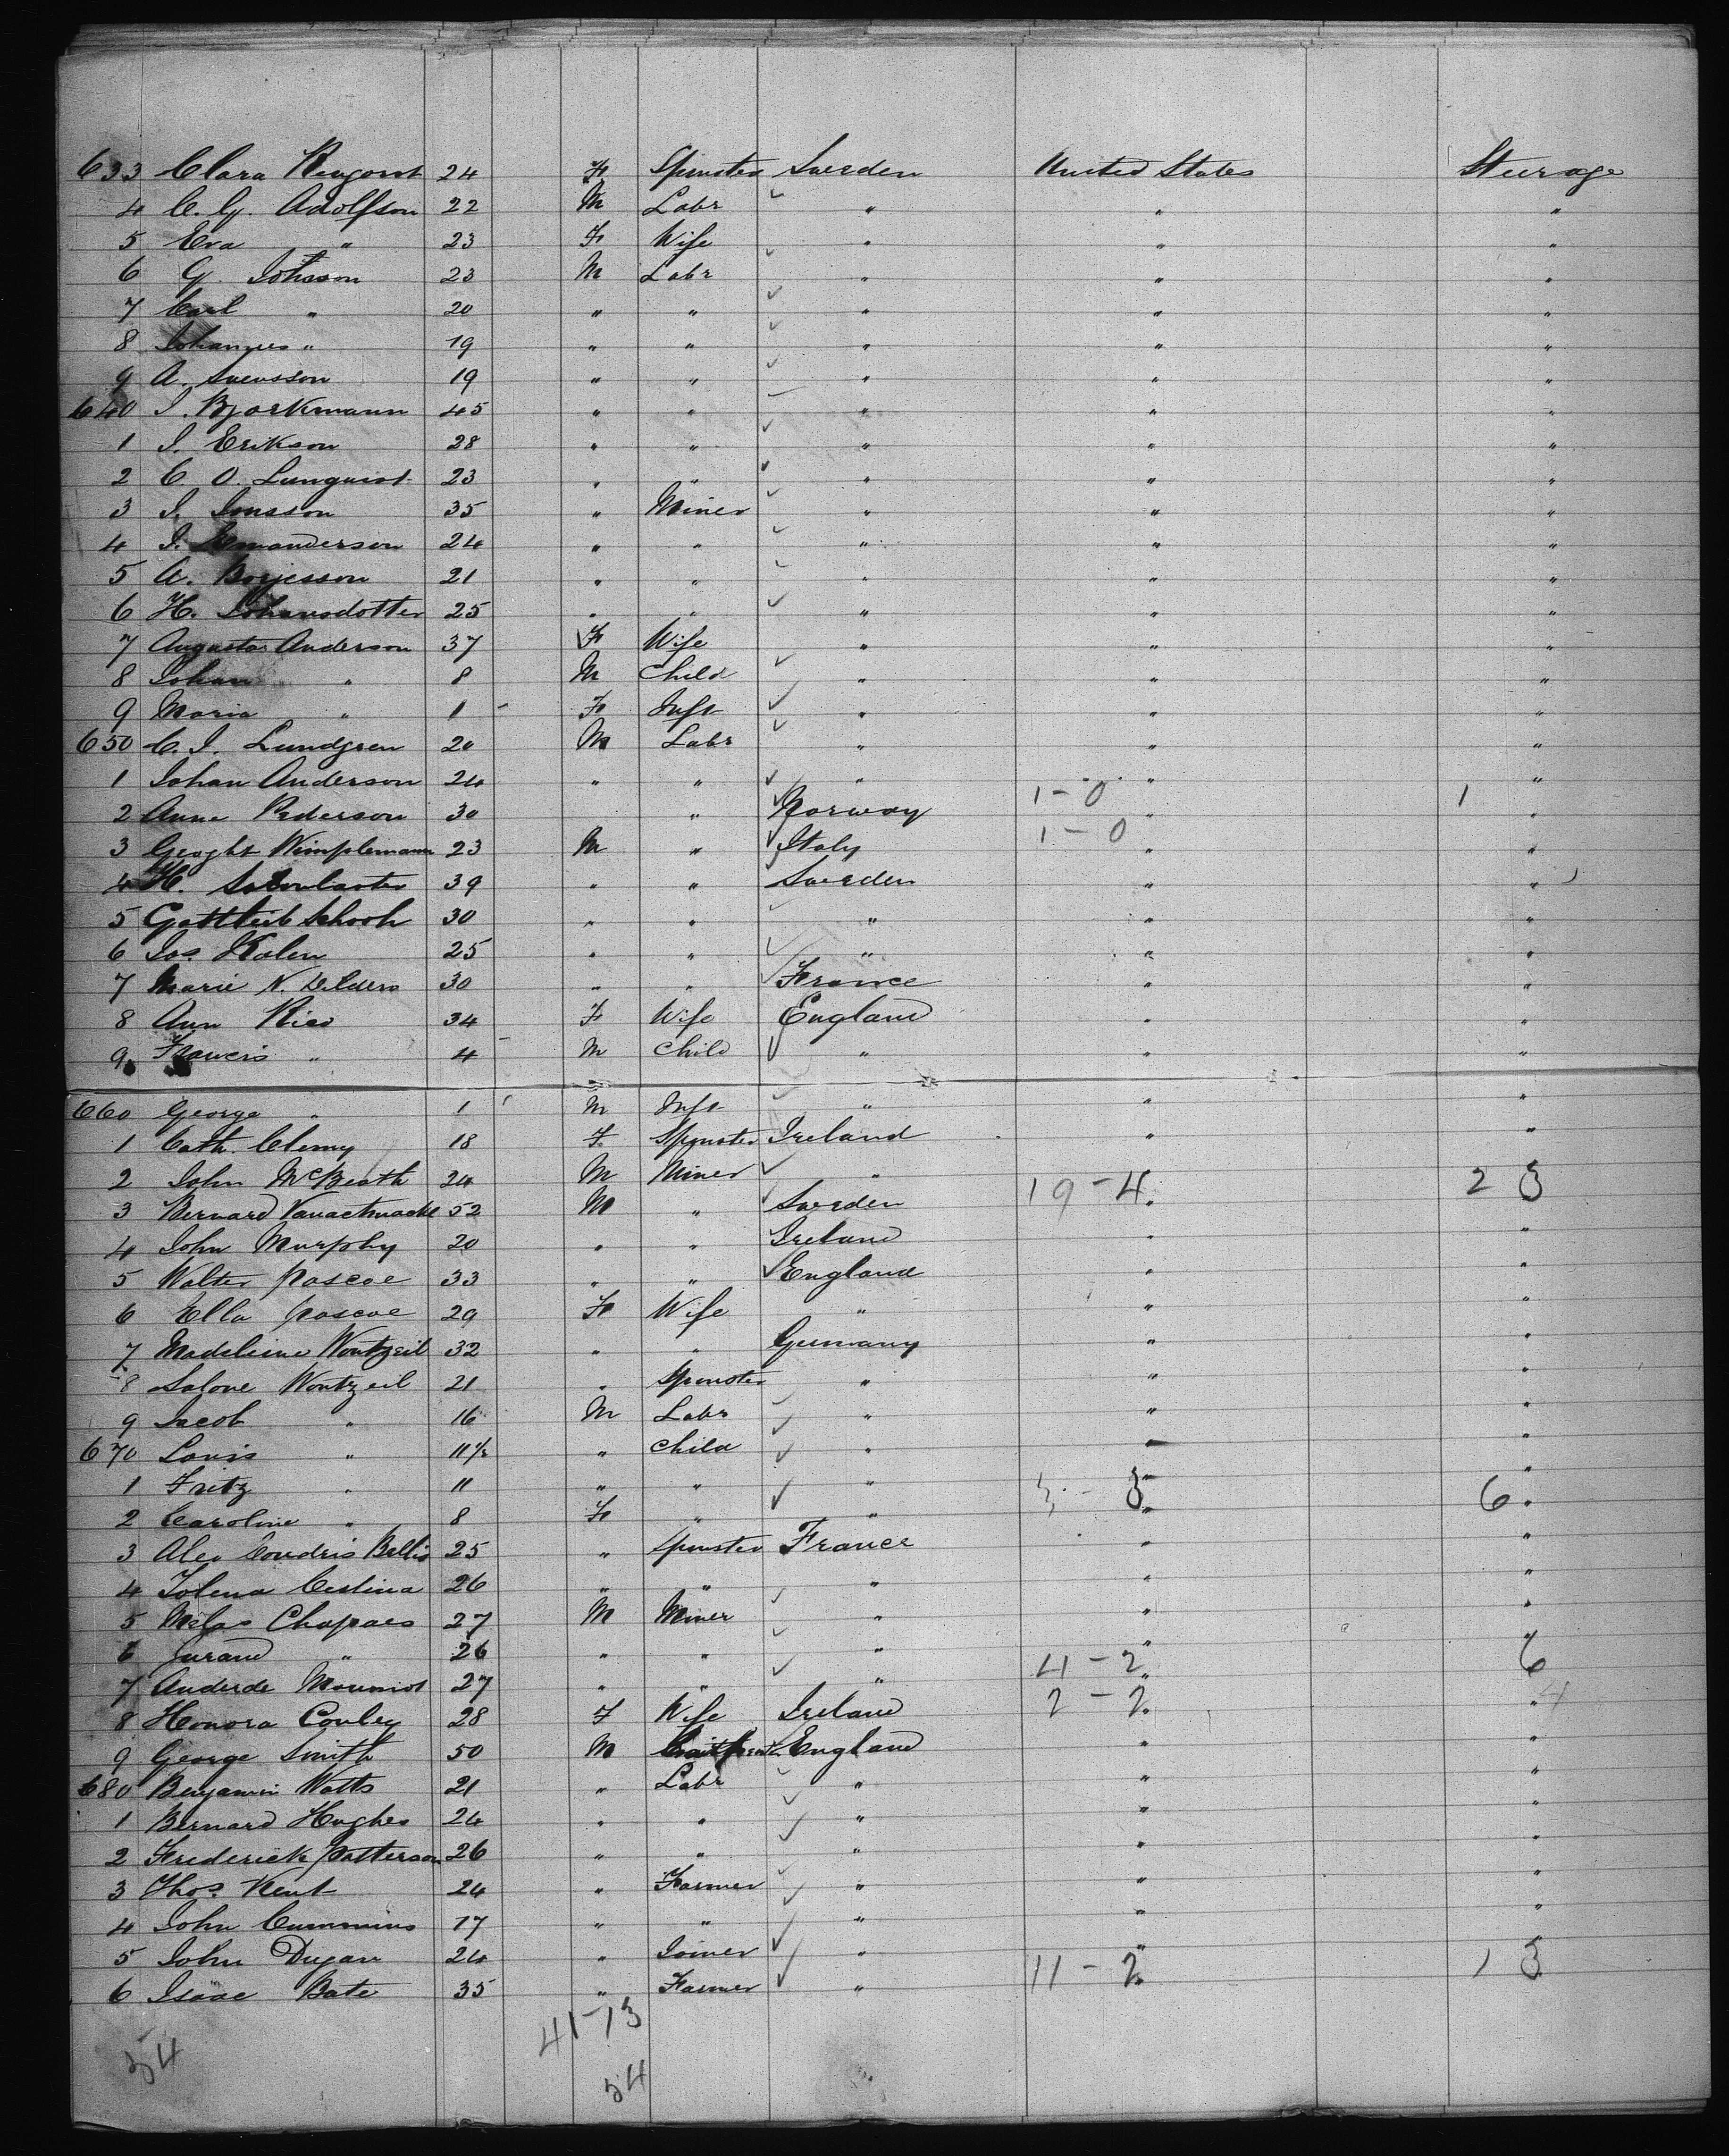 633 Clara Rengorst 24 F Spinster Sweden United States Steerage
4 C. G. Adolfson 22 M Labr " " "
5 Eva " 23 F Wife " " "
6 G. Johnson 23 M Labr " " "
7 Carl " 20 " " " " "
8 Johannes " 19 " " " " "
9 A. Svensson 19 " " " " "
640 J. Bjorkmann 45 " " " " "
1 J. Erikson 28 " " " " "
2 C. O. Lunquist 23 " " " " "
3 J. Jonsson 35 " Miner " " "
4 J. 24 " " " " "
5 A. Borjesson 21 " " " " "
6 H. Johansdotter 25 " " " " "
7 Augusta Anderson 37 F Wife " " "
8 Johan " 8 M Child " " "
9 Maria " 1 F Inft " " "
650 C. J. Lundgren 20 M Labr " " "
1 Johan Anderson 24 " " " " "
2 Anne Pederson 30 " Norway 1-0 " 1 "
3 Wimplemann 23 M " Italy 1-0 " "
4 H. 39 " " Sweden " "
5 Gottleib Schoch 30 " " " " "
6 Jos. Kalen 25 " " " " "
7 Marie V. Delders 30 " " France " "
8 Ann Rice 34 F Wife England " "
9 Francis " 4 M Child " " "
660 George " 1 M Inft " " "
1 Cath. Clemy 18 F Spinster Ireland " "
2 John McBeath 24 M Miner " " "
3 Bernard 52 M " Sweden 19-4 " 23
4 John Murphy 20 " " Ireland " "
5 Walter Pascoe 33 " " England " "
6 Ella Pascoe 29 F Wife " " "
7 Madeleine Wontzeil 32 " " Germany " "
8 Salone Wontzeil 21 " Spinster " " "
9 Jacob " 16 M Labr " " "
670 Louis " 11½ " Child " " "
1 Fritz " 11 " " " " "
2 Caroline " 8 F " " 3-3 " 6 "
3 Alex Coudris Bellis 25 " Spinster France " "
4 Tolena Cestina 26 " " " " "
5 Melas Chapaes 27 M Miner " " "
6 Jurand " 26 " " " " "
7 Anderde Mouniot 27 " " " 4-2 " 6
8 Honora Conley 28 F Wife Ireland 2-2 " 4 "
9 George Smith 50 M England " "
680 Benjamin Watts 21 " Labr " " "
1 Bernard Hughes 24 " " " " "
2 Frederick Patterson 26 " " " " "
3 Thos. Kent 24 " Farmer " " "
4 John Cummins 17 " " " " "
5 John Dugan 24 " Joiner " " "
6 Isaac Bate 35 " Farmer " 11-2 " 13
41-13
54
54